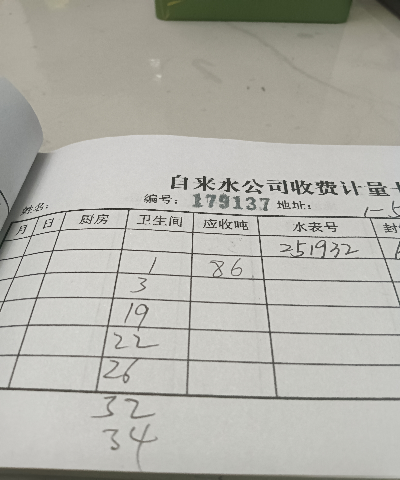 自来水公司收费计量
姓名: 编号: 179137 地址: 1-5
月 日 厨房 卫生间 应收吨 水表号 封
251932
1 86
3
19
22
26
32
34